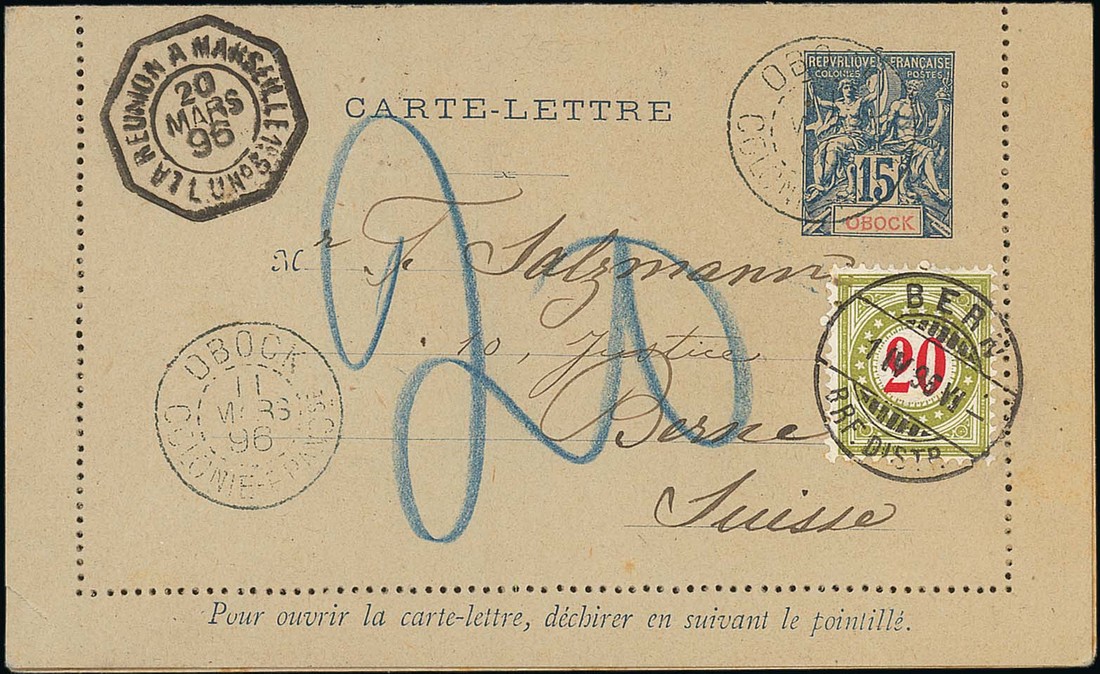 LA REUNION A MARSEILLE
20
MARS
96
L.U. No 1
CARTE-LETTRE
REPVBLIQVE FRANÇAISE
COLONIES POSTES
15
OBOCK
OBOCK
Mr F. Salzmann
10, Justice
Berne
Suisse
20
20
BERN
1 IV 96
BRF. DISTR.
OBOCK
11
MARS
96
COLONIE-FRANÇSE
Pour ouvrir la carte-lettre, déchirer en suivant le pointillé.